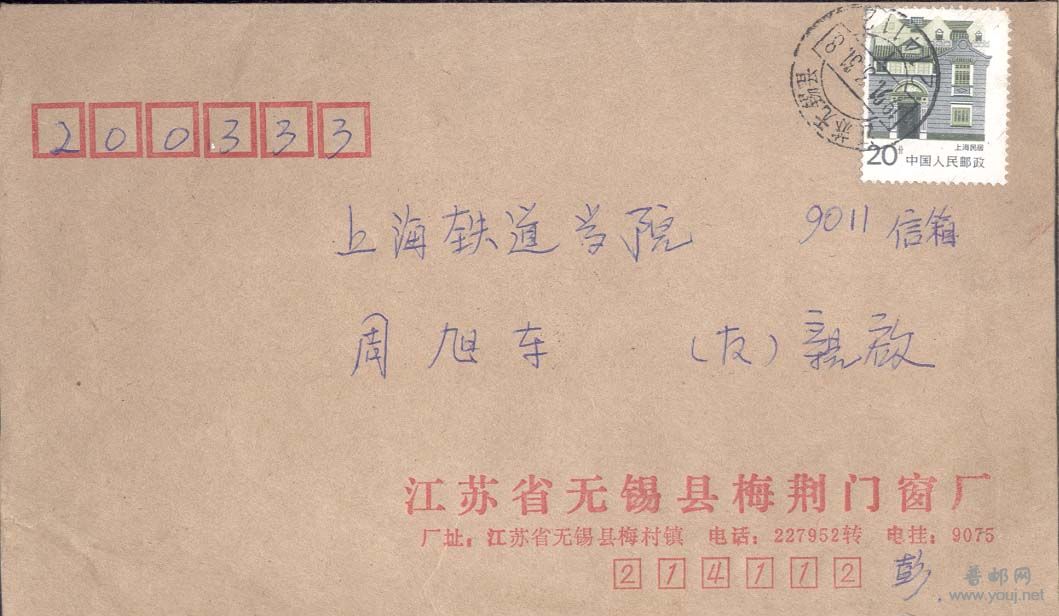 200333
20分
上海民居
中国人民邮政
上海铁道学院 9011信箱
周旭东 (友) 親启
江苏省无锡县梅荆门窗厂
厂址: 江苏省无锡县梅村镇 电话: 227952转 电挂: 9075
214112 彭.
普邮网
www.youj.net